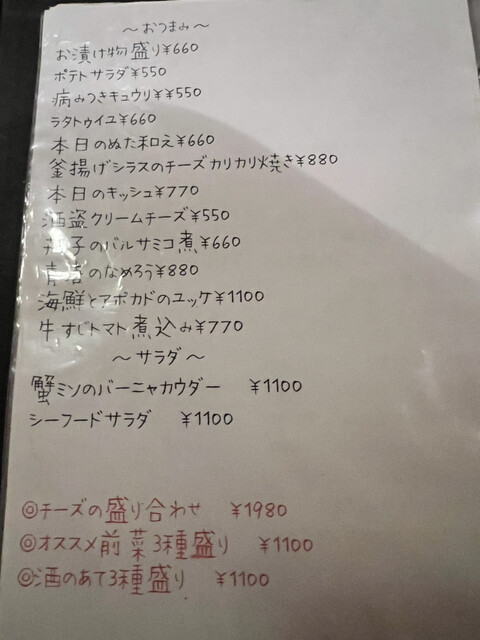 ～おつまみ～
お漬け物盛り¥660
ポテトサラダ¥550
病みつきキュウリ¥¥550
ラタトゥイユ¥660
本日のぬた和え¥660
釜揚げシラスのチーズカリカリ焼き¥880
本日のキッシュ¥770
酒盗クリームチーズ¥550
子のバルサミコ煮¥660
のなめろう¥880
海鮮とアボカドのユッケ¥1100
牛すじトマト煮込み¥770
～サラダ～
蟹ミソのバーニャカウダー ¥1100
シーフードサラダ ¥1100
◎チーズの盛り合わせ ¥1980
◎オススメ前菜3種盛り ¥1100
◎酒のあて3種盛り ¥1100